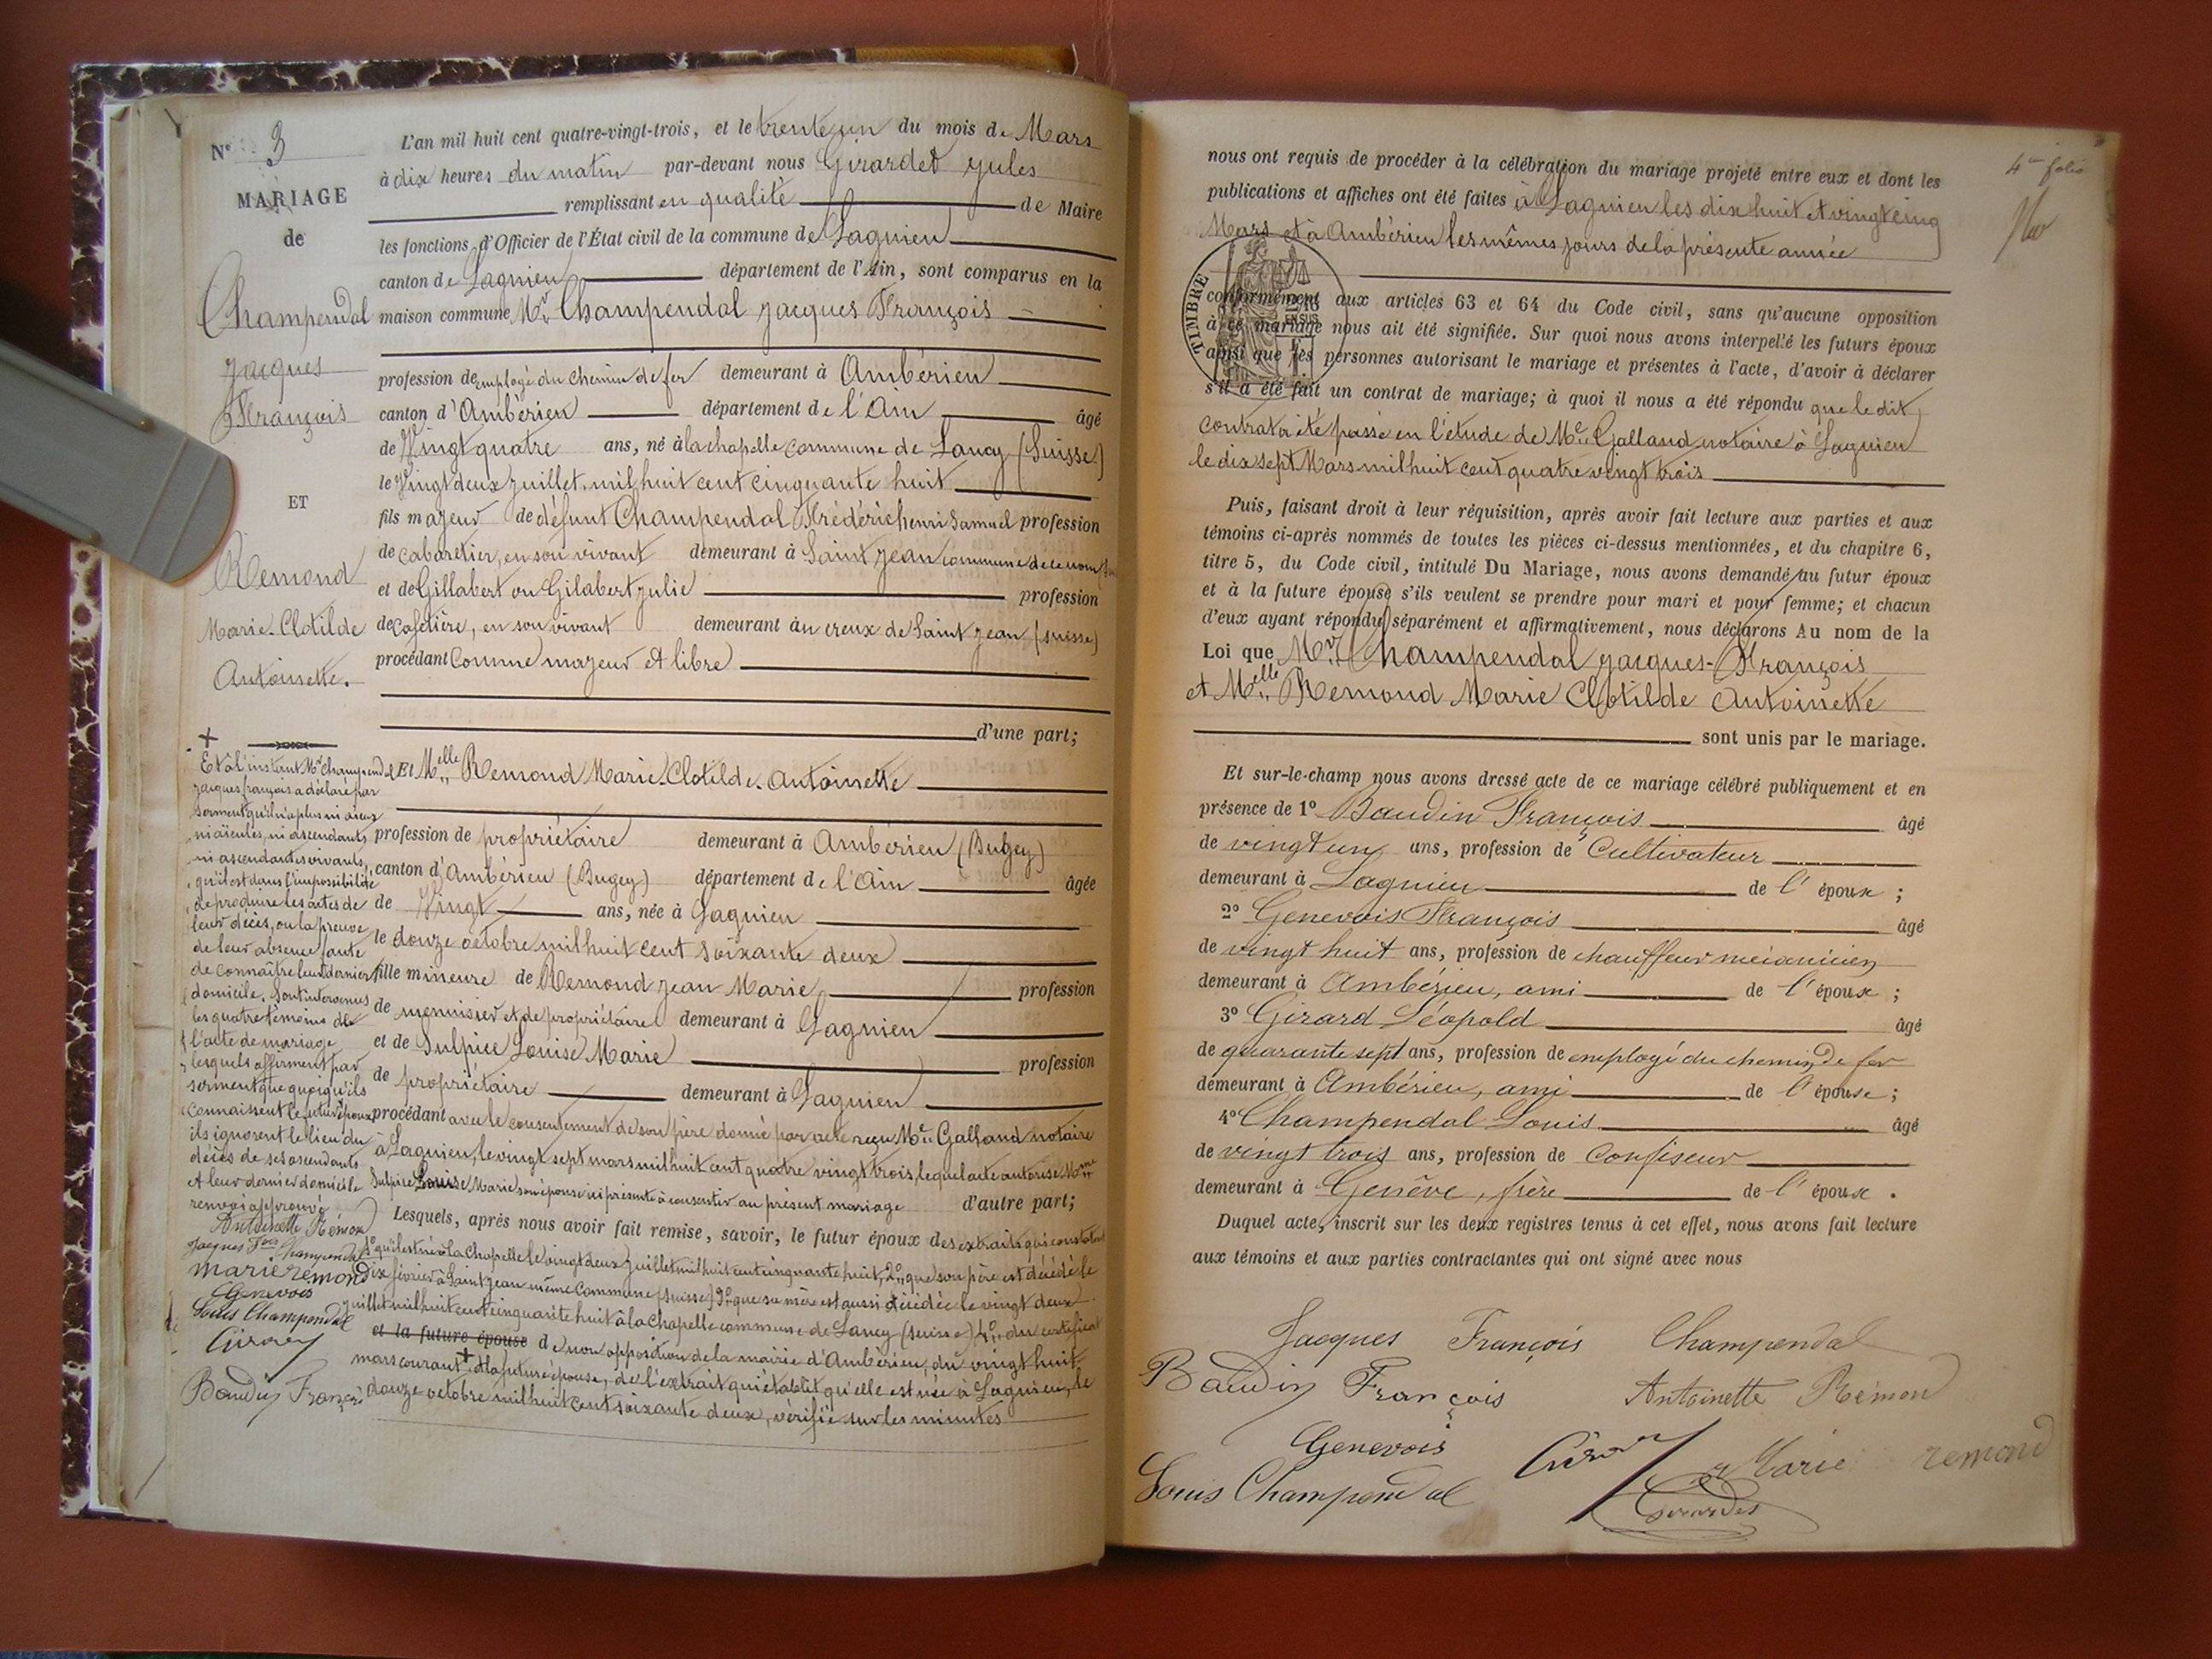 N° 3
MARIAGE
de
Champendal
Jacques
François
ET
Remond
Marie-Clotilde
Antoinette.
L'an mil huit cent quatre-vingt-trois, et le trente un du mois de Mars
à dix heures du matin par-devant nous Girardet Jules
remplissant en qualité de Maire
les fonctions d'Officier de l'État civil de la commune de Lagnieu
canton de Lagnieu département de l'Ain, sont comparus en la
maison commune Mr Champendal Jacques François
profession de employé du chemin de fer demeurant à Ambérieu
canton d'Ambérieu département de l'Ain âgé
de Vingt quatre ans, né à la chapelle commune de Lancy (Suisse)
le Vingt deux Juillet mil huit cent cinquante huit
fils majeur de défunt Champendal Frédéric henri Samuel profession
de cabaretier, en son vivant demeurant à Saint Jean commune de ce nom
et de Gillabert ou Gilabert Julie profession
de cafetière, en son vivant demeurant au creux de Saint Jean (suisse)
procédant comme majeur et libre
d'une part;
Et Melle Remond Marie-Clotilde-Antoinette
profession de propriétaire demeurant à Ambérieu (Bugey)
canton d'Ambérieu (Bugey) département de l'Ain âgée
de Vingt ans, née à Lagnieu
le douze octobre mil huit cent soixante deux
fille mineure de Remond Jean Marie profession
de menuisier et de propriétaire demeurant à Lagnieu
et de Sulpice Louise Marie profession
de propriétaire demeurant à Lagnieu
procédant avec le consentement de son père donné par acte reçu Me Galland notaire
à Lagnieu, le vingt sept mars mil huit cent quatre vingt trois, lequel acte autorise Mme
Sulpice Louise Marie son épouse ici présente à consentir au présent mariage d'autre part;
Lesquels, après nous avoir fait remise, savoir, le futur époux des extraits qui constatent
1° qu'il est né à la Chapelle le vingt deux Juillet mil huit cent cinquante huit, 2° que son père est décédé le
dix février à Saint Jean même commune (suisse) 3° que sa mère est aussi décédée le vingt deux
juillet mil huit cent cinquante huit à la Chapelle commune de Lancy (suisse) 4° du certificat
et la future épouse de non opposition de la mairie d'Ambérieu, du vingt huit
mars courant + et la future épouse, de l'extrait qui établit qu'elle est née à Lagnieu, le
douze octobre mil huit cent soixante deux, vérifié sur les minutes
+
Et à l'instant Mr Champendal
Jacques françois a déclaré par
serment qu'il n'a plus ni aïeux
ni aïeules, ni ascendants
ni ascendantes vivants,
qu'il est dans l'impossibilité
de produire les actes de
leur décès, ou la preuve
de leur absence faute
de connaître leur dernier
domicile. Sont intervenus
les quatre témoins de
l'acte de mariage
lesquels afferment par
serment que quoiqu'ils
connaissent le futur époux
ils ignorent le lieu du
décès de ses ascendants
et leur dernier domicile
renvoi approuvé
Antoinette Rémon
Jacques Fois Champendal
marie remond
Genevois
Louis Champendal
Baudin François
4me folio
nous ont requis de procéder à la célébration du mariage projeté entre eux et dont les
publications et affiches ont été faites à Lagnieu les dix huit et vingt cinq
Mars et à Ambérieu les mêmes jours de la présente année
TIMBRE
conformément aux articles 63 et 64 du Code civil, sans qu'aucune opposition
à ce mariage nous ait été signifiée. Sur quoi nous avons interpellé les futurs époux
ainsi que les personnes autorisant le mariage et présentes à l'acte, d'avoir à déclarer
s'il a été fait un contrat de mariage; à quoi il nous a été répondu que le dit
contrat a été passé en l'étude de Me Galland notaire à Lagnieu
le dix sept Mars mil huit cent quatre vingt trois
Puis, faisant droit à leur réquisition, après avoir fait lecture aux parties et aux
témoins ci-après nommés de toutes les pièces ci-dessus mentionnées, et du chapitre 6,
titre 5, du Code civil, intitulé Du Mariage, nous avons demandé au futur époux
et à la future épouse s'ils veulent se prendre pour mari et pour femme; et chacun
d'eux ayant répondu séparément et affirmativement, nous déclarons Au nom de la
Loi que Mr Champendal Jacques-François
et Melle Remond Marie Clotilde Antoinette
sont unis par le mariage.
Et sur-le-champ nous avons dressé acte de ce mariage célébré publiquement et en
présence de 1° Baudin François âgé
de vingt un ans, profession de Cultivateur
demeurant à Lagnieu de l'époux;
2° Genevois François âgé
de vingt huit ans, profession de chauffeur mécanicien
demeurant à Ambérieu, ami de l'époux;
3° Girard Léopold âgé
de quarante sept ans, profession de employé du chemin de fer
demeurant à Ambérieu, ami de l'épouse;
4° Champendal Louis âgé
de vingt trois ans, profession de Confiseur
demeurant à Genève, frère de l'époux.
Duquel acte, inscrit sur les deux registres tenus à cet effet, nous avons fait lecture
aux témoins et aux parties contractantes qui ont signé avec nous
Jacques François Champendal
Baudin François Antoinette Rémon
Genevois Marie remond
Louis Champendal Girardet